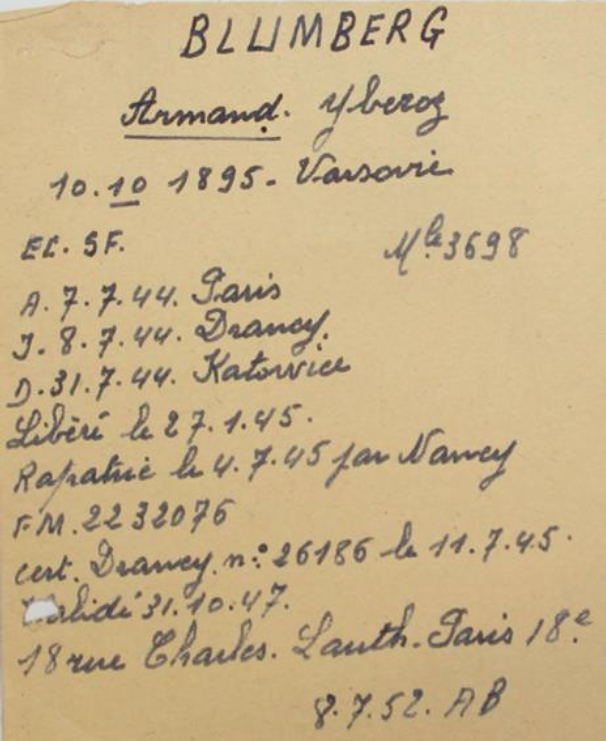 BLUMBERG
Armand. Yberoz
10.10 1895. Varsovie
EC. SF.
Mle 3698
A. 7.7.44. Paris
I. 8.7.44. Drancy.
D. 31.7.44. Katowice
Libéré le 27.1.45.
Rapatrié le 4.7.45 par Nancy
F.M. 2232076
cert. Drancy. n:° 26186 le 11.7.45.
31.10.47.
18 rue Charles. Lauth. Paris 18.e
8.7.52. AB